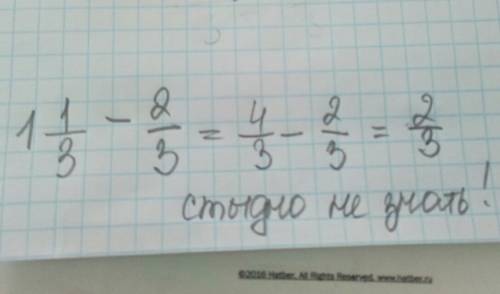 1 1/3 - 2/3 = 4/3 - 2/3 = 2/3
стыдно не знать!
©2016 Hatber. All Rights Reserved. www.hatber.ru